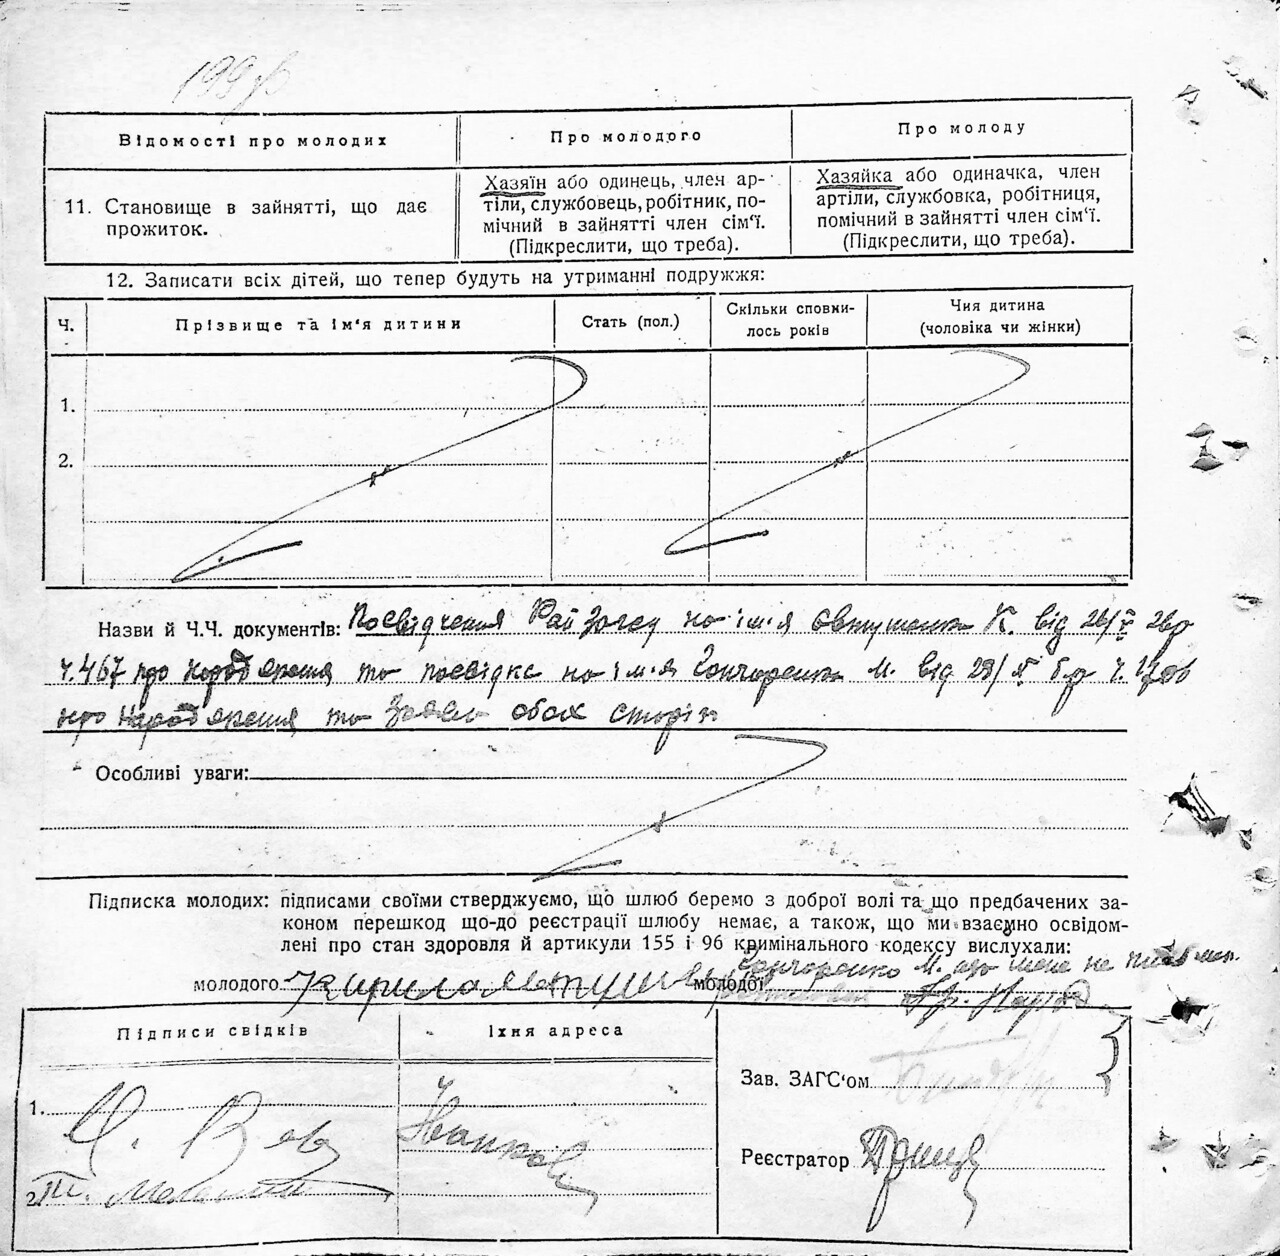 Відомості про молодих
Про молодого
Про молоду
11. Становище в зайнятті, що дає прожиток.
Хазяїн або одинець, член ар-
тіли, службовець, робітник, по-
мічний в зайнятті член сім'ї.
(Підкреслити, що треба).
Хазяйка або одиначка, член
артіли, службовка, робітниця,
помічний в зайнятті член сім'ї.
(Підкреслити, що треба).
12. Записати всіх дітей, що тепер будуть на утриманні подружжя:
Ч.
Прізвище та ім'я дитини
Стать (пол.)
Скільки сповни-
лось років
Чия дитина
(чоловіка чи жінки)
1.
2.
Назви й Ч.Ч. документів: Посвідчення Рай Загсу на ім'я К. від
ч. 467 про народження та посвідка на ім'я Гончаренко М. від
про народження та заява обох сторін
Особливі уваги:
Підписка молодих: підписами своїми стверджуємо, що шлюб беремо з доброї волі та що предбачених за-
коном перешкод що-до реєстрації шлюбу немає, а також, що ми взаємно освідом-
лені про стан здоровля й артикули 155 і 96 кримінального кодексу вислухали:
Гончаренко М.
молодого молодої
Підписи свідків
Їхня адреса
1.
2.
Зав. ЗАГС'ом
Реєстратор